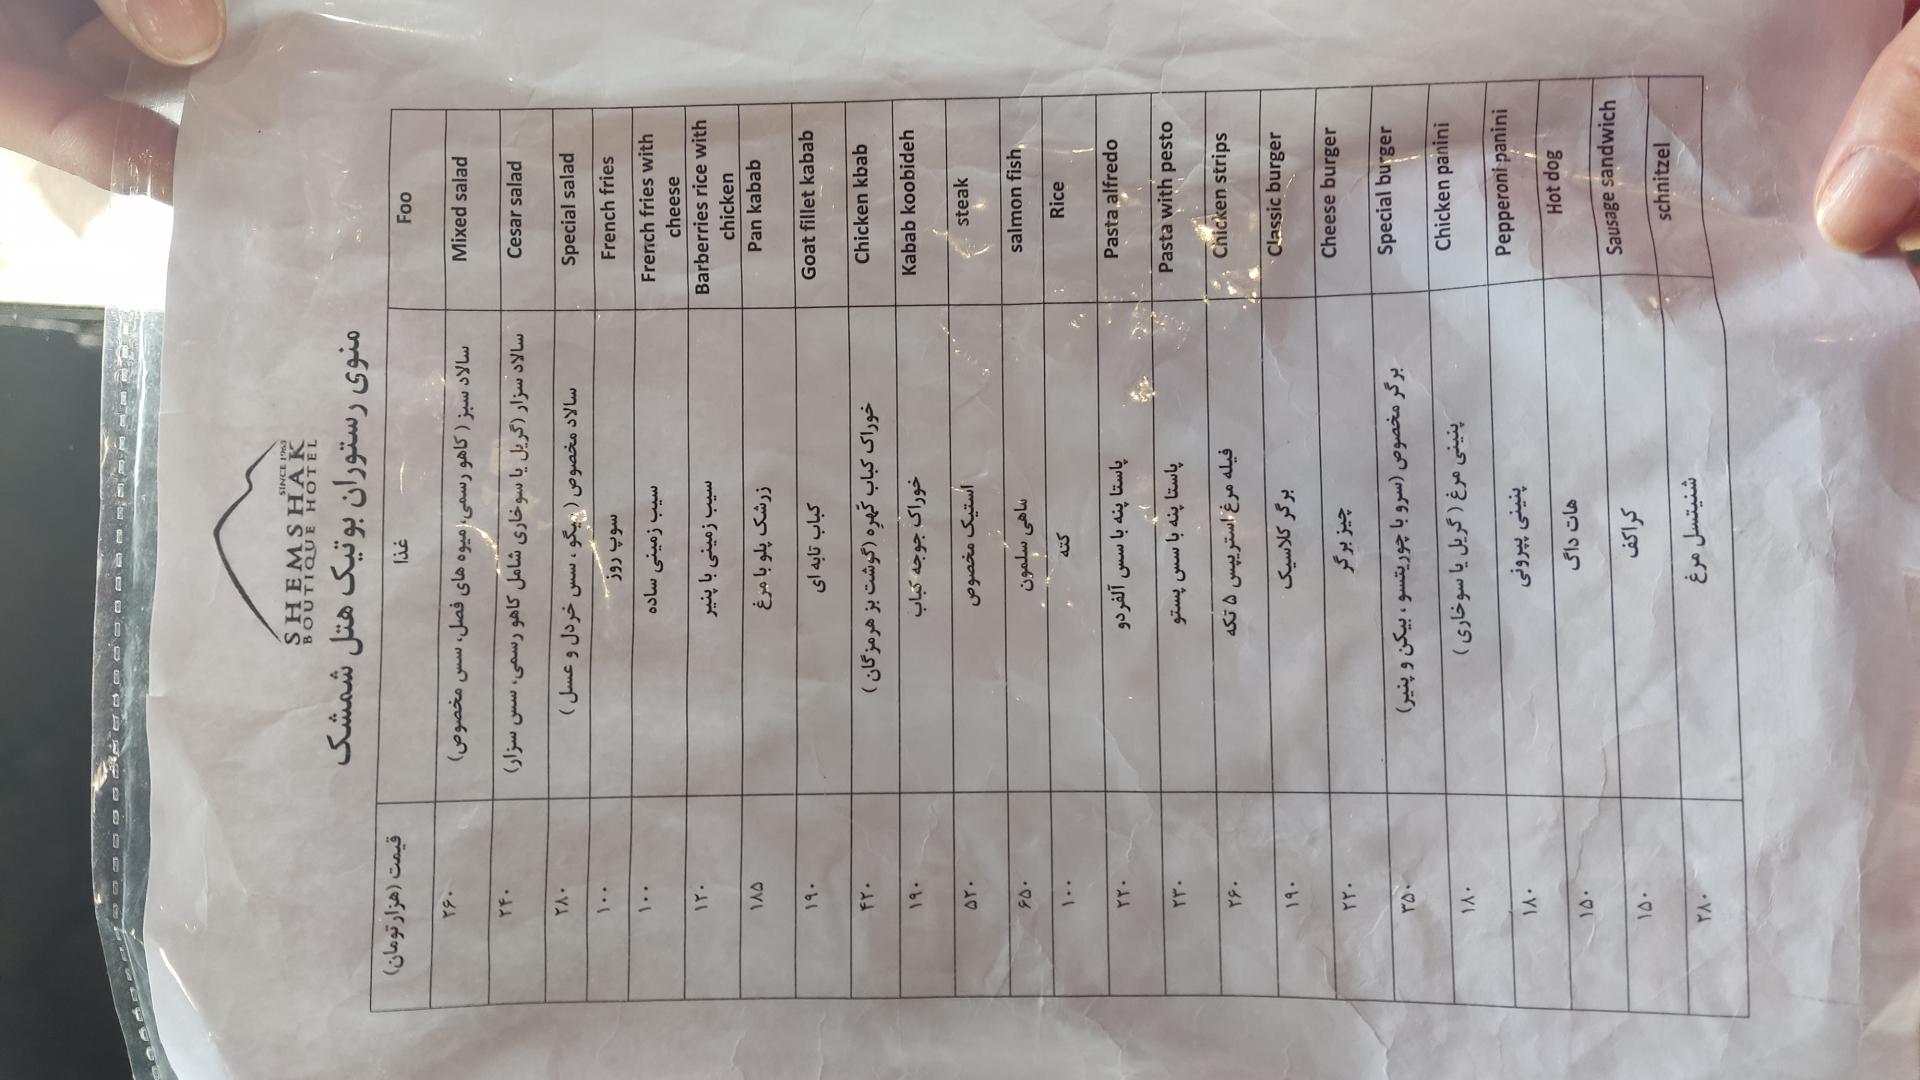 SHEMSHAK
SINCE 1963
BOUTIQUE HOTEL
منوی رستوران بوتیک هتل شمشک
قیمت (هزار تومان) غذا Foo
۲۶۰ سالاد سبز (کاهو رسمی، میوه های فصل، سس مخصوص) Mixed salad
۲۴۰ سالاد سزار (گریل یا سوخاری شامل کاهو رسمی، سس سزار) Cesar salad
۲۸۰ سالاد مخصوص (میگو، سس خردل و عسل) Special salad
۱۰۰ سوپ روز French fries
۱۰۰ سیب زمینی ساده French fries with cheese
۱۲۰ سیب زمینی با پنیر Barberries rice with chicken
۱۸۵ زرشک پلو با مرغ Pan kabab
۱۹۰ کباب تابه ای Goat fillet kabab
۴۲۰ خوراک کباب کَهره (گوشت بز هرمزگان) Chicken kbab
۱۹۰ خوراک جوجه کباب Kabab koobideh
۵۲۰ استیک مخصوص steak
۶۵۰ ماهی سلمون salmon fish
۱۰۰ کته Rice
۲۲۰ پاستا پنه با سس آلفردو Pasta alfredo
۲۳۰ پاستا پنه با سس پستو Pasta with pesto
۲۶۰ فیله مرغ استریپس ۵ تکه Chicken strips
۱۹۰ برگر کلاسیک Classic burger
۲۲۰ چیز برگر Cheese burger
۳۵۰ برگر مخصوص (سرو با چوریتسو، بیکن و پنیر) Special burger
۱۸۰ پنینی مرغ (گریل یا سوخاری) Chicken panini
۱۸۰ پنینی پپرونی Pepperoni panini
۱۵۰ هات داگ Hot dog
۱۵۰ کراکف Sausage sandwich
۲۸۰ شنیتسل مرغ schnitzel